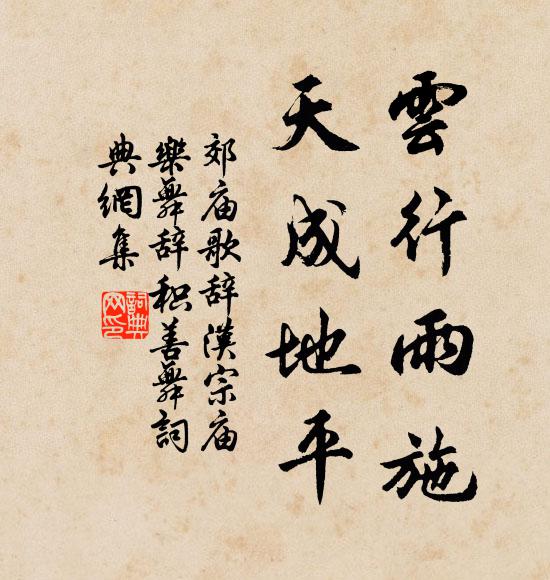 雲行雨施
天成地平
郊庙歌辞漢宗庙
樂舞辞积善舞詞
典網集
詞典
网印